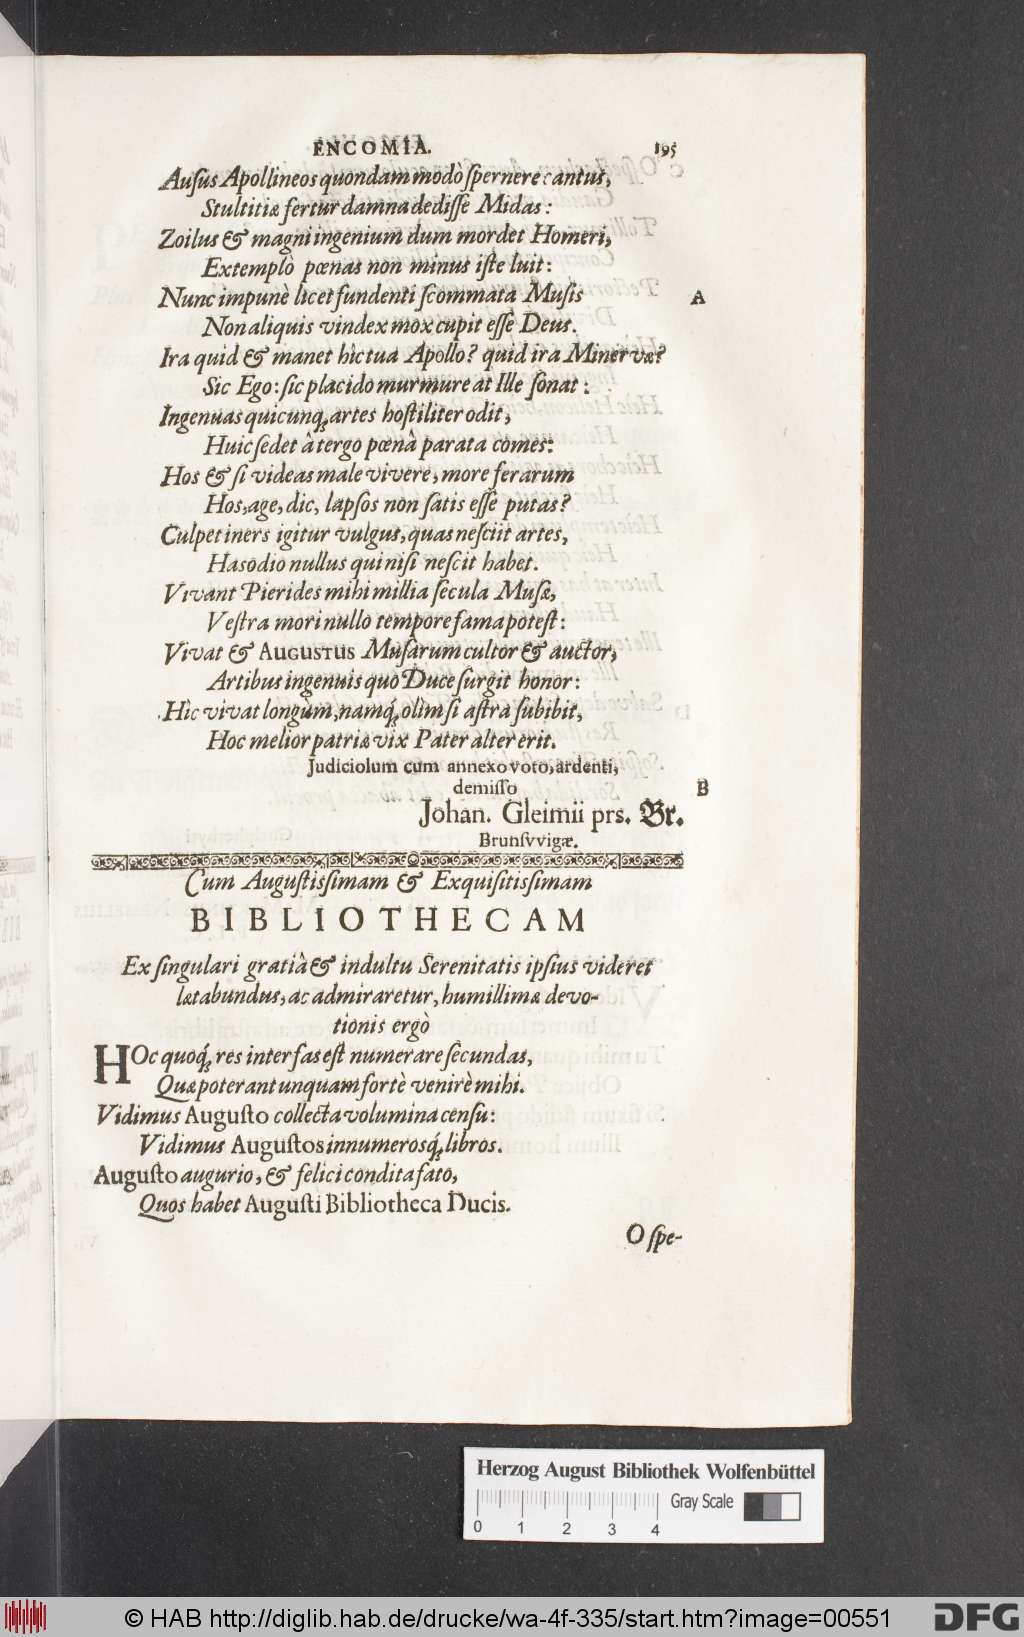 ENCOMIA. 195
Auſus Apollineos quondam modò ſpernere cantus,
Stultitiæ fertur damna dediſſe Midas:
Zoilus & magni ingenium dum mordet Homeri,
Extemplò pœnas non minus iſte luit:
Nunc impunè licet fundenti ſcommata Muſis
A
Non aliquis vindex mox cupit eſſe Deus.
Ira quid & manet hìc tua Apollo? quid ira Minervæ?
Sic Ego: ſic placido murmure at Ille ſonat:
Ingenuas quicunq; artes hoſtiliter odit,
Huic ſedet â tergo pœnâ parata comes:
Hos & ſi videas male vivere, more ferarum
Hos, age, dic, lapſos non ſatis eſſe putas?
Culpet iners igitur vulgus, quas neſciit artes,
Has odio nullus qui niſi neſcit habet.
Vivant Pierides mihi millia ſecula Muſæ,
Veſtra mori nullo tempore fama poteſt:
Vivat & AUGUSTUS Muſarum cultor & auctor,
Artibus ingenuis quo Duce ſurgit honor:
Hìc vivat longùm, namq́; olim ſi aſtra ſubibit,
Hoc melior patriæ vix Pater alter erit.
Judiciolum cum annexo voto, ardenti,
demiſſo
B
Johan. Gleimii prs. Br.
Brunſvvigæ.
Cum Auguſtiſsimam & Exquiſitiſsimam
BIBLIOTHECAM
Ex ſingulari gratiâ & indultu Serenitatis ipſius videret
lætabundus, ac admiraretur, humillimæ devo-
tionis ergò
HOc quoq́; res inter fas eſt numerare ſecundas,
Quæ poterant unquam fortè venirè mihi.
Vidimus Auguſto collecta volumina cenſu:
Vidimus Auguſtos innumerosq́; libros.
Auguſto augurio, & felici condita fato,
Quos habet Auguſti Bibliotheca Ducis.
O ſpe-
Herzog August Bibliothek Wolfenbüttel
Gray Scale
0 1 2 3 4
© HAB http://diglib.hab.de/drucke/wa-4f-335/start.htm?image=00551
DFG